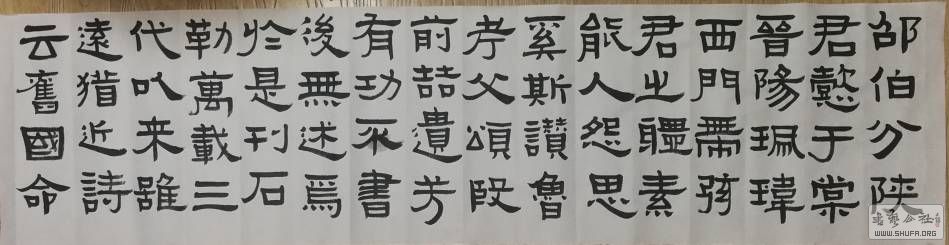 邵伯分陝
君懿于棠
晉陽珮瑋
西門帶弦
君之體素
能人怨思
奚斯讚魯
考父頌殷
前喆遺芳
有功不書
後無述焉
於是刊石
勒萬載三
代以来雖
遠猶近詩
云舊國命
WWW.SHUFA.ORG